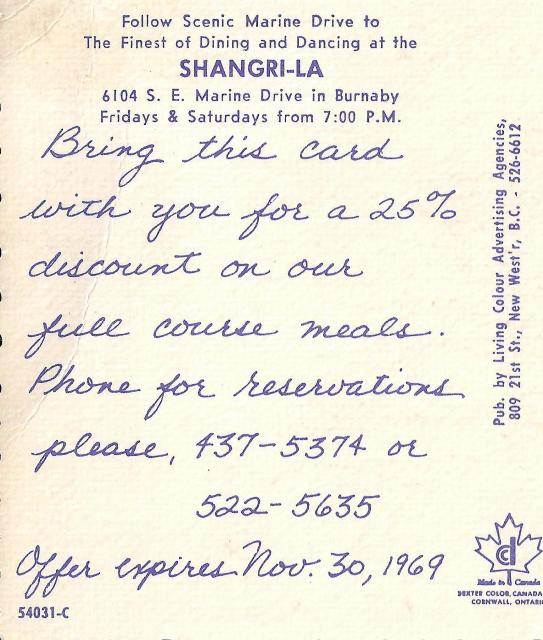 Follow Scenic Marine Drive to
The Finest of Dining and Dancing at the
SHANGRI-LA
6104 S. E. Marine Drive in Burnaby
Fridays & Saturdays from 7:00 P.M.
Bring this card
with you for a 25%
discount on our
full course meals.
Phone for reservations
please, 437-5374 or
522-5635
Offer expires Nov. 30, 1969
54031-C
Pub. by Living Colour Advertising Agencies,
809 21st St., New West'r, B.C. - 526-6612
cd
Made in Canada
DEXTER COLOR, CANADA
CORNWALL, ONTARIO